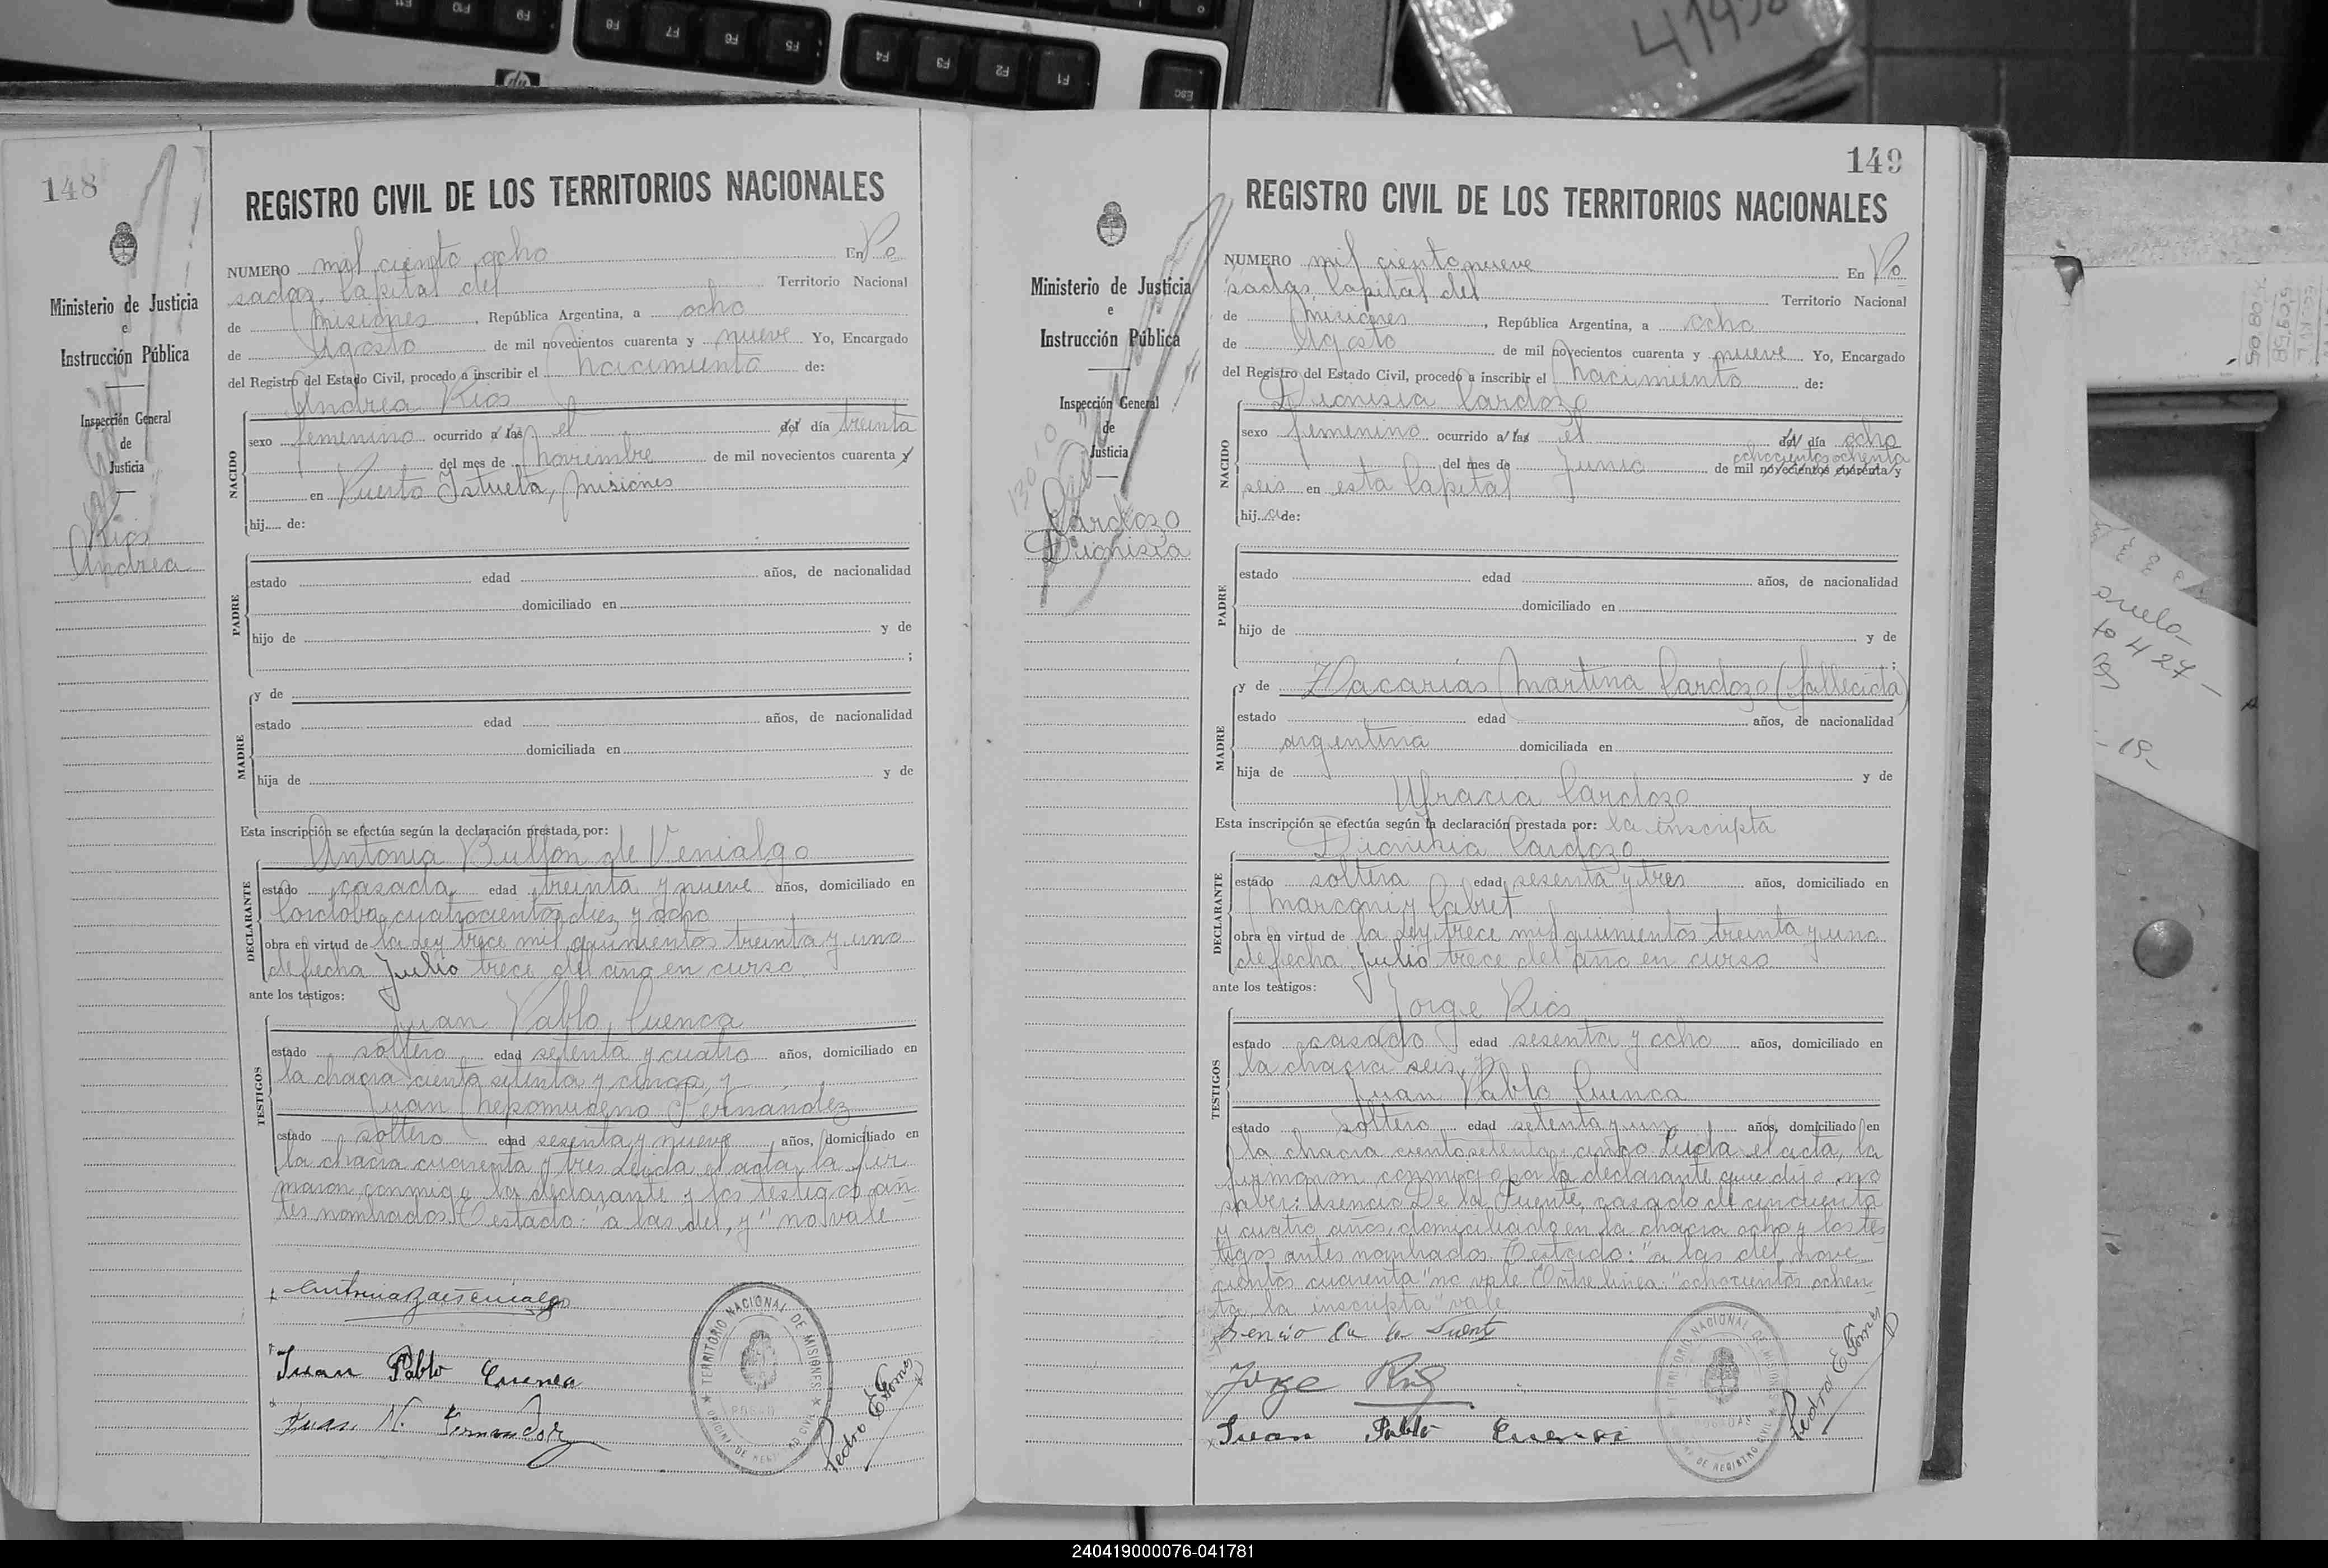 148
REGISTRO CIVIL DE LOS TERRITORIOS NACIONALES
Ministerio de Justicia
e
Instrucción Pública
Inspección General
de
Justicia
Rios
Andrea
NUMERO mil ciento ocho En Po
sadas, Capital del Territorio Nacional
de Misiones, República Argentina, a ocho
de Agosto de mil novecientos cuarenta y nueve Yo, Encargado
del Registro del Estado Civil, procedo a inscribir el nacimiento de:
Andrea Rios
NACIDO
sexo femenino ocurrido a las el del día treinta
del mes de noviembre de mil novecientos cuarenta y
en Puerto Istueta, Misiones
hij.... de:
PADRE
estado edad años, de nacionalidad
domiciliado en
hijo de y de
;
MADRE
y de
estado edad años, de nacionalidad
domiciliada en
hija de y de
Esta inscripción se efectúa según la declaración prestada por:
DECLARANTE
Antonia de Venialgo
estado casada edad treinta y nueve años, domiciliado en
Cordoba cuatrocientos diez y ocho
obra en virtud de la Ley trece mil quinientos treinta y uno
de fecha Julio trece del año en curso
ante los testigos:
TESTIGOS
Juan Pablo Cuenca
estado soltero edad setenta y cuatro años, domiciliado en
la chacra ciento setenta y cinco y
Juan Nepomuceno Fernandez
estado soltero edad sesenta y nueve años, domiciliado en
la chacra cuarenta y tres Leida el acta, la fir
maron conmigo la declarante y los testigos an
tes nombrados Testado: "a las del, y" no vale
Juan Pablo Cuenca
Juan N. Fernandez
Pedro E Gomez
TERRITORIO NACIONAL DE MISIONES
OFICINA DE REGISTRO CIVIL
POSADAS
149
REGISTRO CIVIL DE LOS TERRITORIOS NACIONALES
Ministerio de Justicia
e
Instrucción Pública
Inspección General
de
Justicia
Cardozo
Dionisia
NUMERO mil ciento nueve En Po
sadas Capital del Territorio Nacional
de Misiones, República Argentina, a ocho
de Agosto de mil novecientos cuarenta y nueve Yo, Encargado
del Registro del Estado Civil, procedo a inscribir el nacimiento de:
Dionisia Cardozo
NACIDO
sexo femenino ocurrido a las el del día ocho
ochocientos ochenta
del mes de Junio de mil novecientos cuarenta y
seis en esta Capital
hij a de:
PADRE
estado edad años, de nacionalidad
domiciliado en
hijo de y de
;
MADRE
y de Macarias Martina Cardozo (fallecida)
estado edad años, de nacionalidad
argentina domiciliada en
hija de y de
Ufracia Cardozo
Esta inscripción se efectúa según la declaración prestada por: la inscripta
DECLARANTE
Dionisia Cardozo
estado soltera edad sesenta y tres años, domiciliado en
Marconi y Cabret
obra en virtud de la Ley trece mil quinientos treinta y uno
de fecha Julio trece del año en curso
ante los testigos:
TESTIGOS
Jorge Rios
estado casado edad sesenta y ocho años, domiciliado en
la chacra seis, y
Juan Pablo Cuenca
estado soltero edad setenta y un años, domiciliado en
la chacra ciento setenta y cinco Leida el acta, la
firmaron conmigo por la declarante que dijo no
saber: Asencio De la Fuente, casado de cincuenta
y cuatro años, domiciliado en la chacra ocho y los tes
tigos antes nombrados Testado: "a las del nove
cientos cuarenta" no vale Entre linea: "ochocientos ochen
ta, la inscripta" vale
Asencio de la Fuente
Jorge Rios
Juan Pablo Cuenca
Pedro E Gomez
240419000076-041781